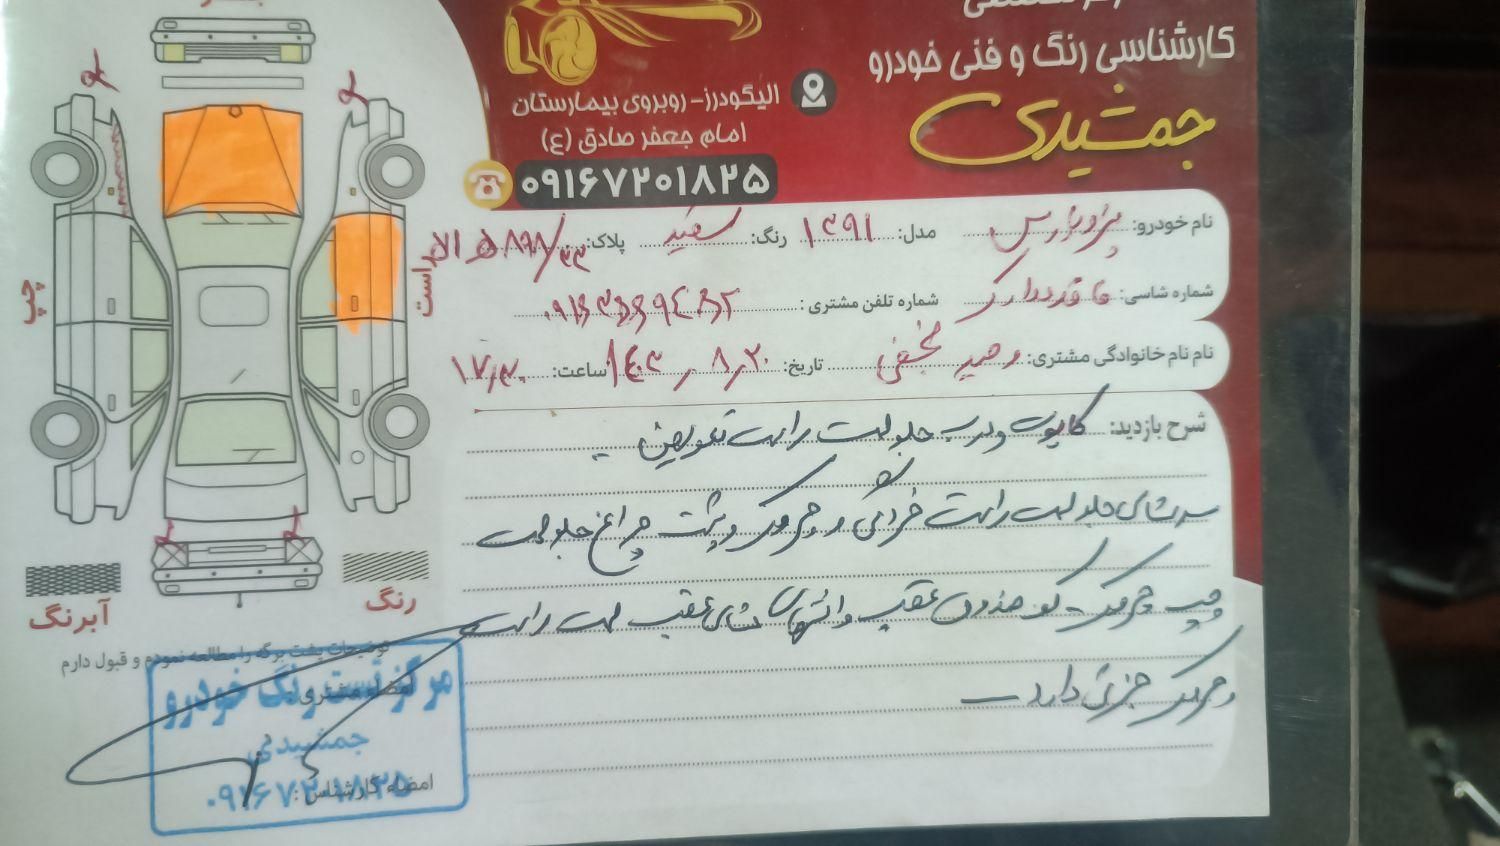 کارشناسی رنگ و فنی خودرو
جمشیدی
الیگودرز- روبروی بیمارستان
امام جعفر صادق (ع)
۰۹۱۶۷۲۰۱۸۲۵
نام خودرو: پژو پارس مدل: ۱۳۹۱ رنگ: سفید پلاک:
شماره شاسی: فاقد مدارک شماره تلفن مشتری:
نام نام خانوادگی مشتری: وحید تاریخ: ۱۴۰۳/۸/۲۰ ساعت: ۱۷/۳۰
شرح بازدید: کاپوت و درب جلو سمت راست تعویض
سرشاسی جلو سمت راست خوردگی و چروک و پشت چراغ جلو سمت
چپ چروک - کف صندوق عقب و انتهای شاسی عقب سمت راست
چروک جزئی دارد
چپ
راست
رنگ
آبرنگ
توضیحات پشت برگه را مطالعه نمودم و قبول دارم
امضاء مشتری:
مرکز تست رنگ خودرو
جمشیدی
امضاء کارشناس:
۰۹۱۶۷۲۰۱۸۲۵